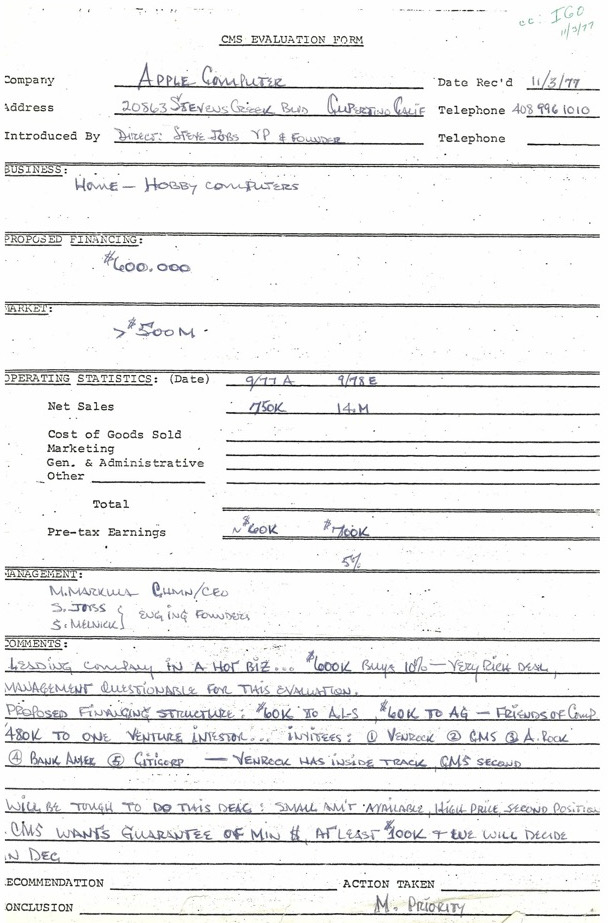 cc: IGO
11/3/77
CMS EVALUATION FORM
Company APPLE COMPUTER Date Rec'd 11/3/77
Address 20863 STEVENS CREEK BLVD CUPERTINO CALIF Telephone 408 996 1010
Introduced By DIRECT: STEVE JOBS VP & FOUNDER Telephone
BUSINESS:
HOME - HOBBY COMPUTERS
PROPOSED FINANCING:
$600.000
MARKET:
>$500M.
OPERATING STATISTICS: (Date) 9/77 A 9/78 E
Net Sales 750K 14.M
Cost of Goods Sold
Marketing
Gen. & Administrative
Other
Total
Pre-tax Earnings ~$60K $700K
5%
MANAGEMENT:
M. MARKULA CHMN/CEO
S. JOBS } ENGING FOUNDERS
S. MELNICK
COMMENTS:
LEADING COMPANY IN A HOT BIZ... $600K BUYS 10% - VERY RICH DEAL,
MANAGEMENT QUESTIONABLE FOR THIS EVALUATION.
PROPOSED FINANCING STRUCTURE: $60K TO ALS, $60K TO AG - FRIENDS OF COMP
480K TO ONE VENTURE INVESTOR... INVITEES: ① VENROCK ② CMS ③ A. ROCK
④ BANK AMER ⑤ CITICORP - VENROCK HAS INSIDE TRACK, CMS SECOND
WILL BE TOUGH TO DO THIS DEAL: SMALL AM'T AVAILABLE, HIGH PRICE, SECOND POSITION
CMS WANTS GUARANTEE OF MIN $, AT LEAST $300K & WE WILL DECIDE
IN DEC
RECOMMENDATION ACTION TAKEN
CONCLUSION M. PRIORITY